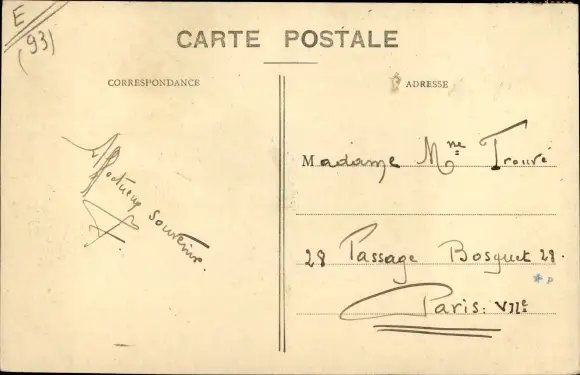 E
(93)
CARTE POSTALE
CORRESPONDANCE
ADRESSE
Affectueux souvenir.
Madame Mme Trouvé
28 Passage Bosquet 28.
Paris: VIIe